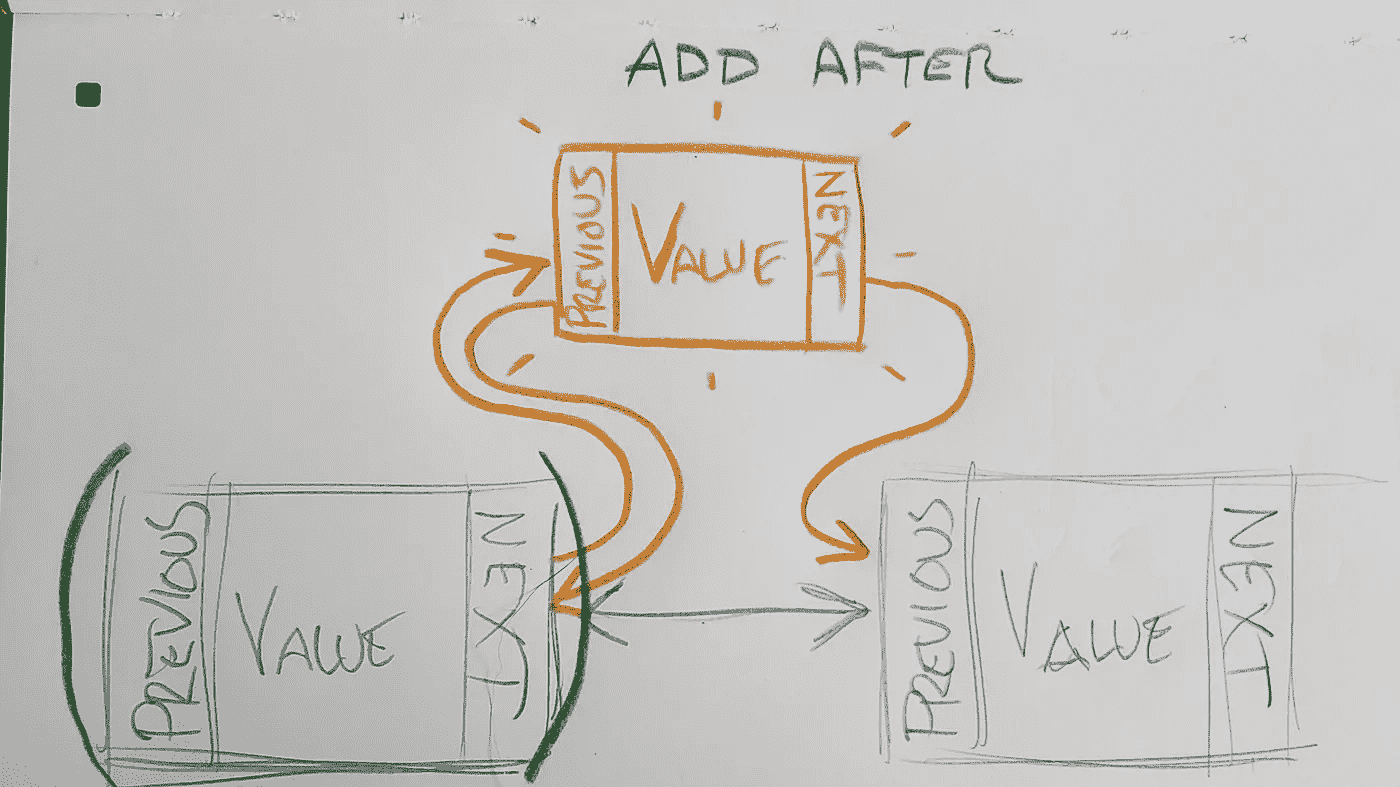 ADD AFTER
PREVIOUS
VALUE
NEXT
PREVIOUS
VALUE
NEXT
PREVIOUS
VALUE
NEXT